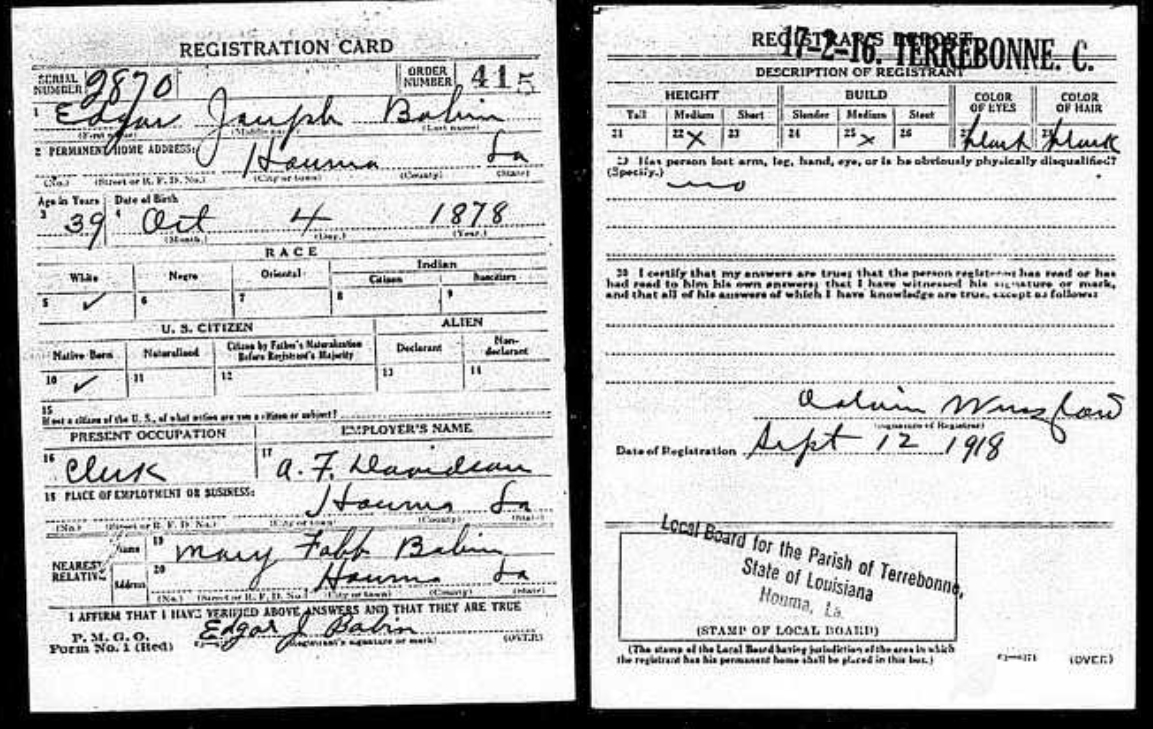 REGISTRATION CARD
SERIAL NUMBER 2870 ORDER NUMBER 415
1 Edgar Joseph Babin
(First name) (Middle name) (Last name)
2 PERMANENT HOME ADDRESS:
Houma La
(No.) (Street or R. F. D. No.) (City or town) (County) (State)
Age in Years Date of Birth
3 39 4 Oct 4 1878
(Month.) (Day.) (Year.)
RACE
White Negro Oriental Indian
Citizen Noncitizen
5 ✓ 6 7 8 9
U. S. CITIZEN ALIEN
Native Born Naturalized Citizen by Father's Naturalization Before Registrant's Majority Declarant Non-declarant
10 ✓ 11 12 13 14
15
If not a citizen of the U. S., of what nation are you a citizen or subject?
PRESENT OCCUPATION EMPLOYER'S NAME
16 Clerk 17 A. F. Davidson
18 PLACE OF EMPLOYMENT OR BUSINESS:
Houma La
(No.) (Street or R. F. D. No.) (City or town) (County) (State)
NEAREST RELATIVE Name 19 Mary Babin
Address 20 Houma La
(No.) (Street or R. F. D. No.) (City or town) (County) (State)
I AFFIRM THAT I HAVE VERIFIED ABOVE ANSWERS AND THAT THEY ARE TRUE
P. M. G. O.
Form No. 1 (Red) Edgar J Babin
(Registrant's signature or mark) (OVER)
REGISTRAR'S REPORT
17-2-16. TERREBONNE. C.
DESCRIPTION OF REGISTRANT
HEIGHT BUILD COLOR OF EYES COLOR OF HAIR
Tall Medium Short Slender Medium Stout
21 22 X 23 24 25 X 26 27 black 28 black
29 Has person lost arm, leg, hand, eye, or is he obviously physically disqualified?
(Specify.)
no
30 I certify that my answers are true; that the person registered has read or has
had read to him his own answers; that I have witnessed his signature or mark,
and that all of his answers of which I have knowledge are true, except as follows:
(Signature of Registrar)
Date of Registration Sept 12 1918
Local Board for the Parish of Terrebonne,
State of Louisiana
Houma, La.
(STAMP OF LOCAL BOARD)
(The stamp of the Local Board having jurisdiction of the area in which
the registrant has his permanent home shall be placed in this box.)
(OVER)